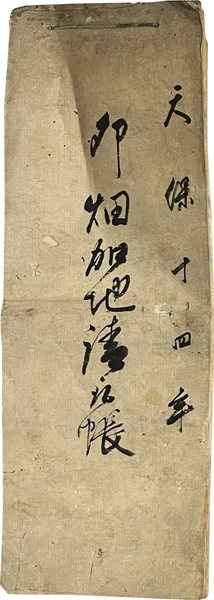 天保十四年
卯畑加地請取帳